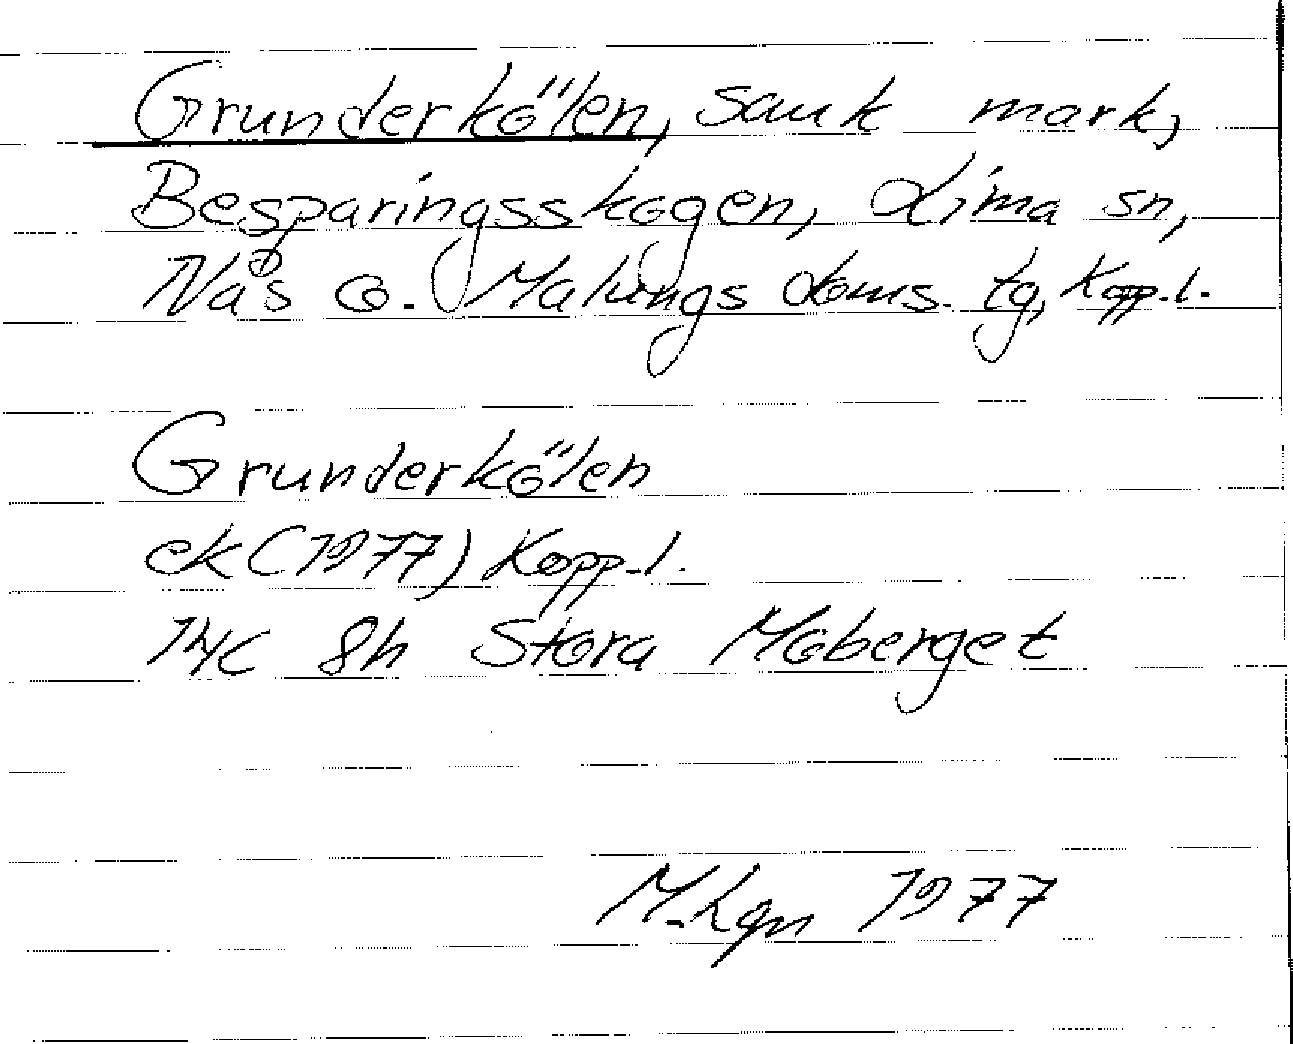 Grunderkölen, sank mark,
Besparingsskogen, Lima sn,
Nås o. Malungs doms. tg, Kopp. l.
Grunderkölen
ek (1977) Kopp. l.
14C 8h Stora Moberget
M. Lgn 1977